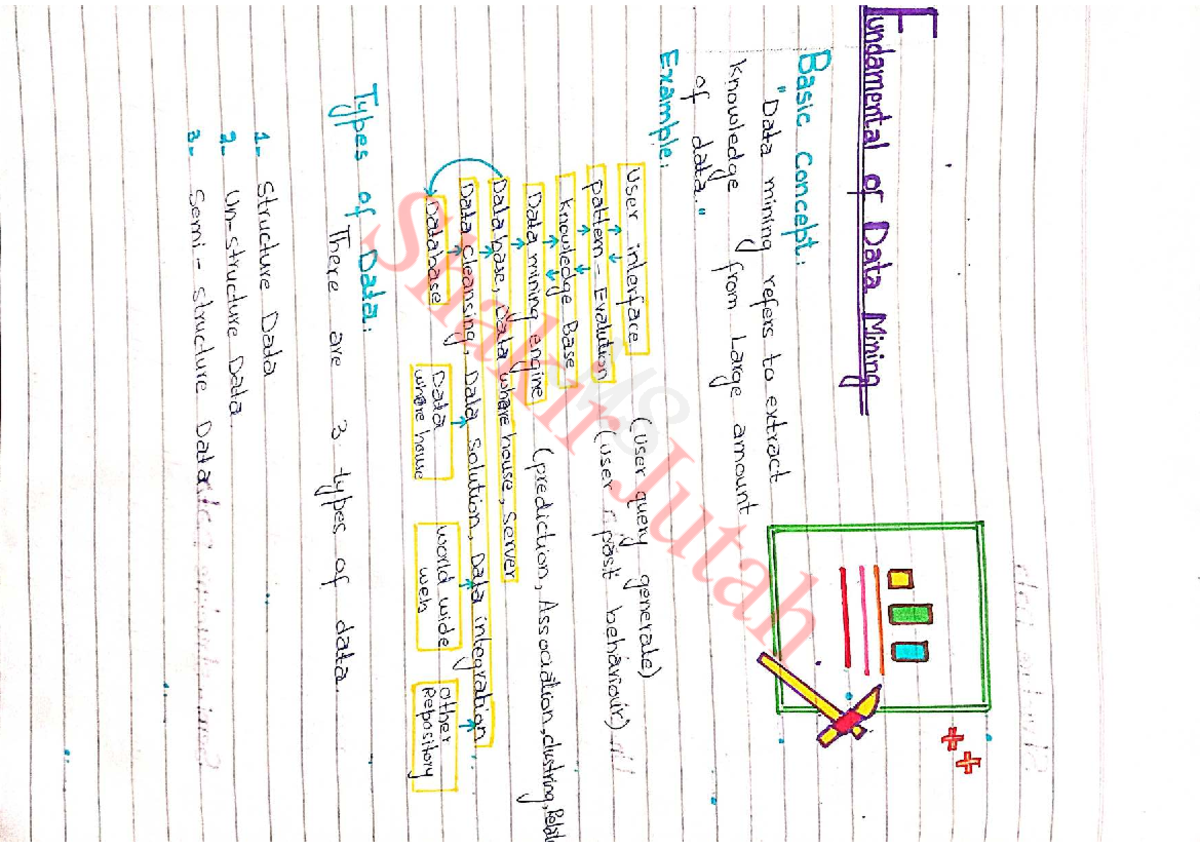 Fundamental of Data Mining
Basic Concept:
"Data mining refers to extract
knowledge from Large amount
of data."
Example:
User interface (user query generate)
pattern - Evalution (user past behaviour)
knowledge Base
Data mining engine (prediction, Association, clustring,
Data base, Data where house, Server
Data cleansing, Data Solution, Data integration
Database
Data where house
world wide web
other Repository
Types of Data:
There are 3 types of data.
1- Structure Data
2- Un-structure Data.
3- Semi - structure Data
Shakir Jutah